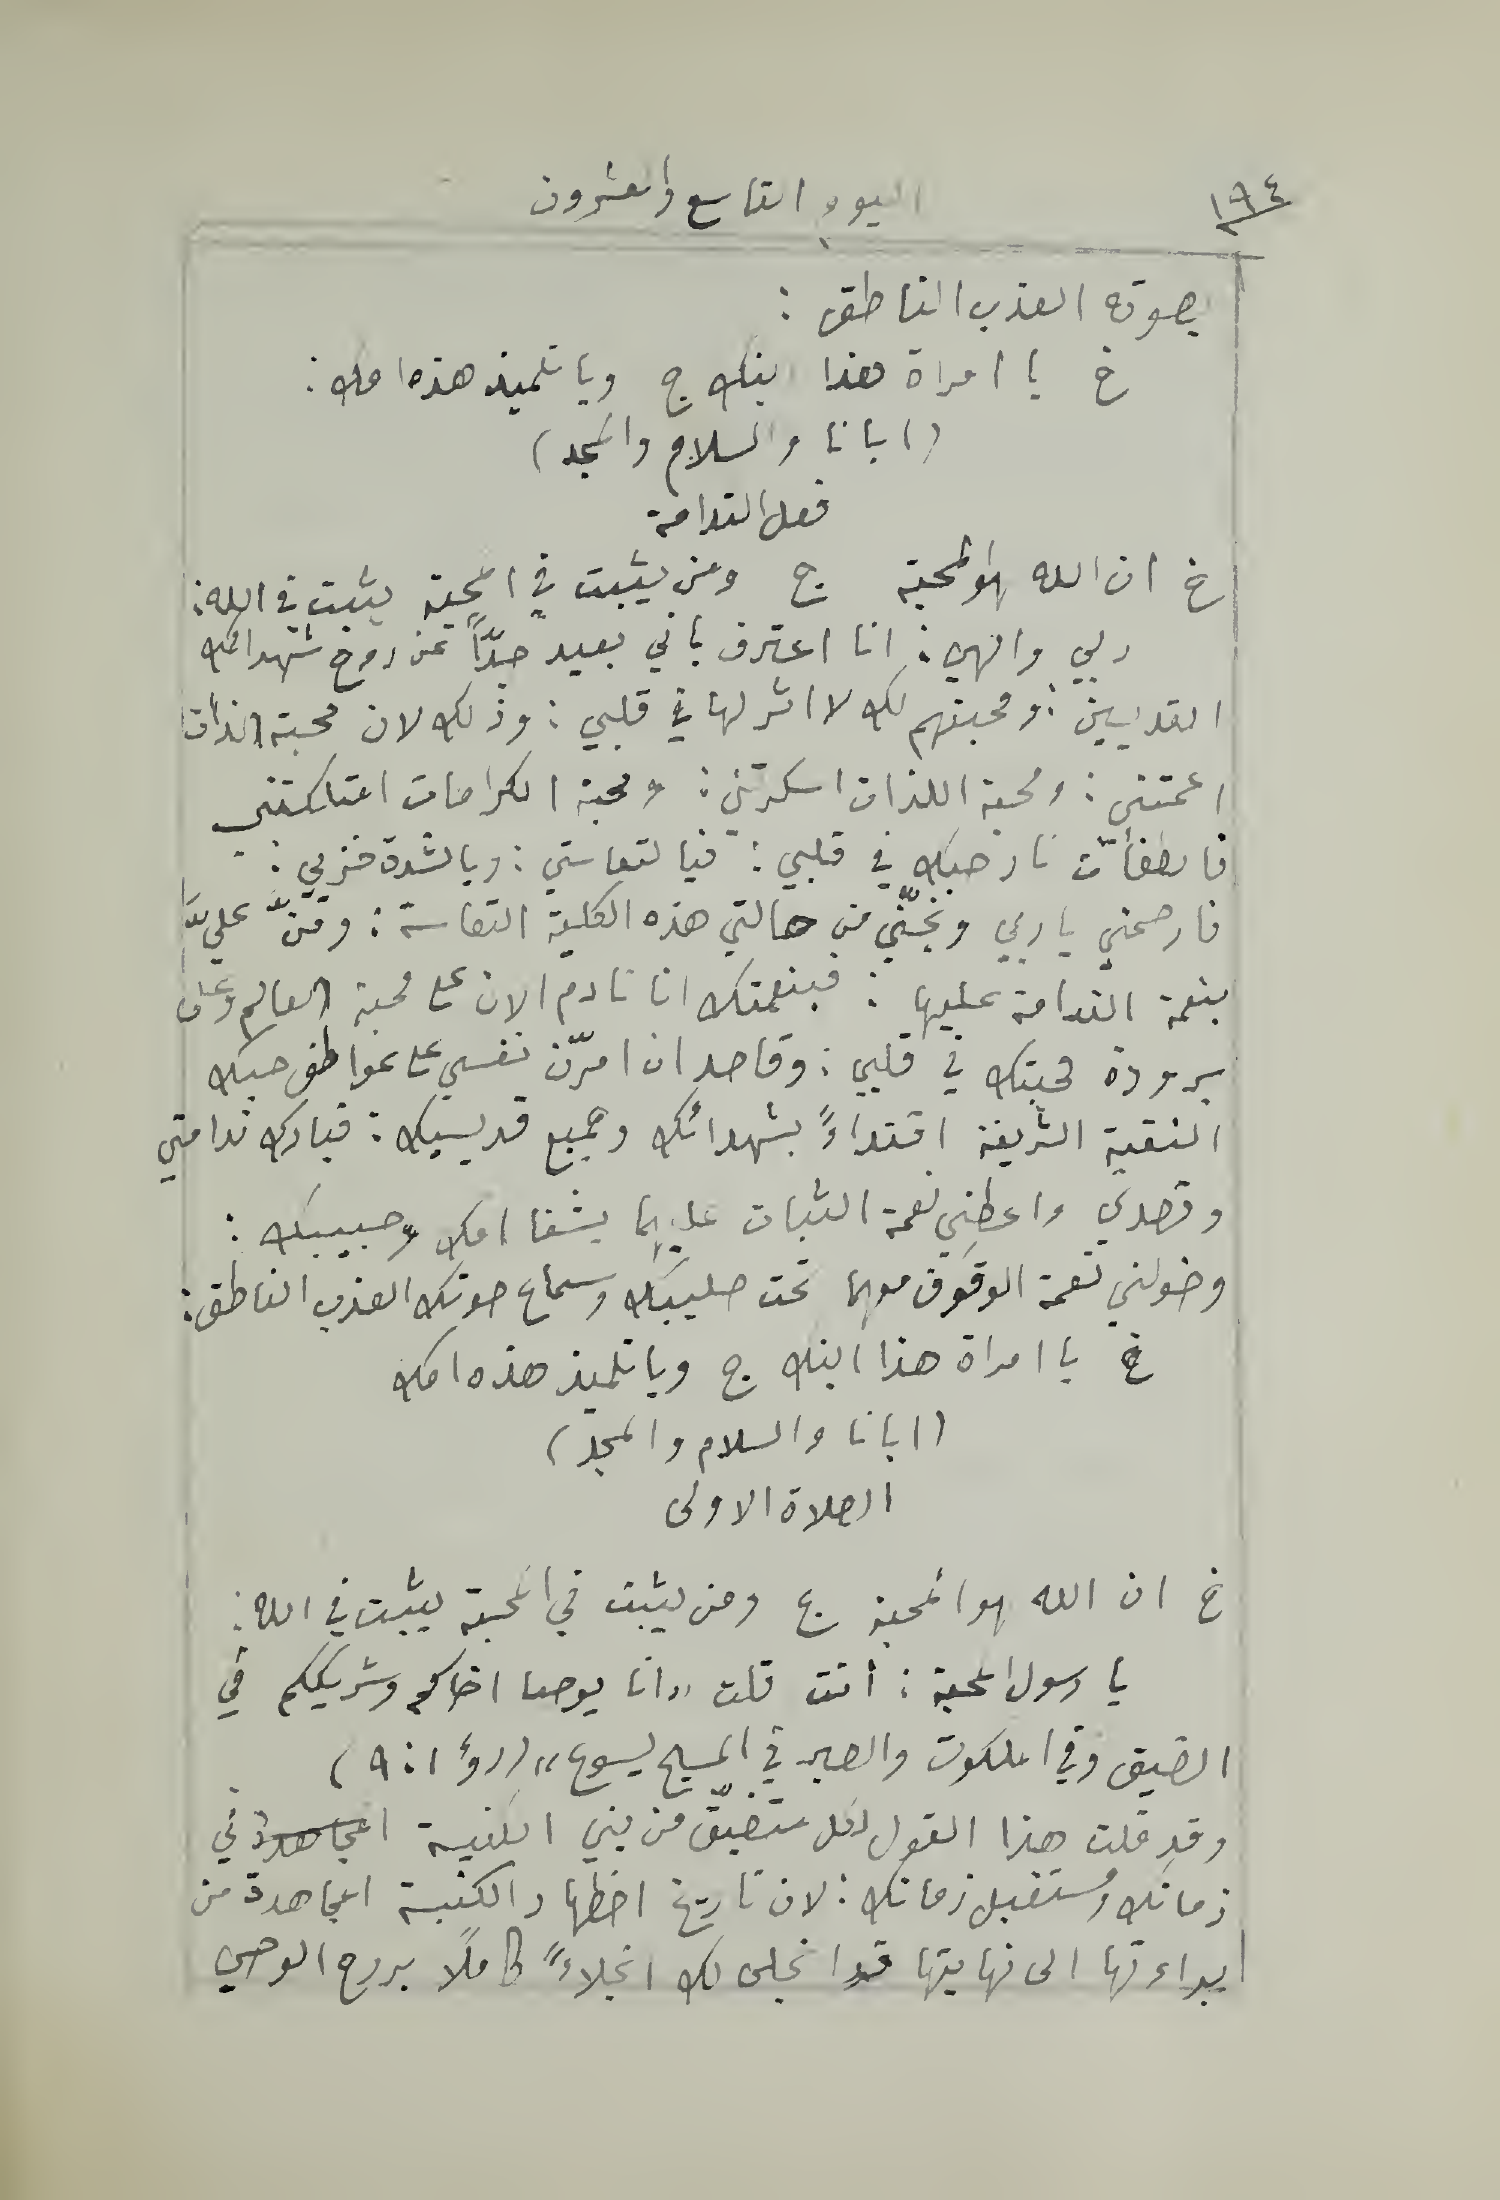 ١٩٤
اليوم التاسع والعشرون
بصوته العذب الناطق :
خ يا امراة هذا ابنك ج ويا تلميذ هذه امك :
(ابانا والسلام والمجد)
فعل الندامة
خ ان الله هو المحبة ج ومن يثبت في المحبة يثبت في الله :
ربي والهي : انا اعترف باني بعيد جدّاً عن روح شهدائك
القديسين : ومحبتهم لك لا اثر لها في قلبي : وذلك لان محبة الذات
اعمتني : ومحبة اللذات اسكرتني : ومحبة الكرامات امتلكتني
فانطفأت نار حبك في قلبي : فيا لتعاستي : ويا لشدة خزيي :
فارحمني يا ربي ونجّني من حالتي هذه الكلية التعاسة : ومُنّ عليَّ
بنعمة الندامة عليها : فبنعمتك انا نادم الان على محبة العالم وعلى
برودة محبتك في قلبي : وقاصد ان امرّن نفسي على عواطف حبك
النقية الشريفة اقتداءً بشهدائك وجميع قديسيك : فبارك ندامتي
وقصدي واعطني نعمة الثبات عليهما بشفاعة امك وحبيبك :
وخولني نعمة الوقوف معهما تحت صليبك وسماع صوتك العذب الناطق :
خ يا امراة هذا ابنك ج ويا تلميذ هذه امك
(ابانا والسلام والمجد)
الصلاة الاولى
خ ان الله هو المحبة ج ومن يثبت في المحبة يثبت في الله :
يا رسول المحبة : أنت قلت „انا يوحنا اخاكم وشريككم في
الضيق وفي الملكوت والصبر في المسيح يسوع„ (رؤ ١ : ٩)
وقد قلت هذا القول لكل متضيّق من بني الكنيسة المجاهدة في
زمانك ومستقبل زمانك : لان تاريخ اضطهاد الكنيسة المجاهدة من
بداءتها الى نهايتها قد انجلى لك انجلاءً كاملًا بروح الوحي